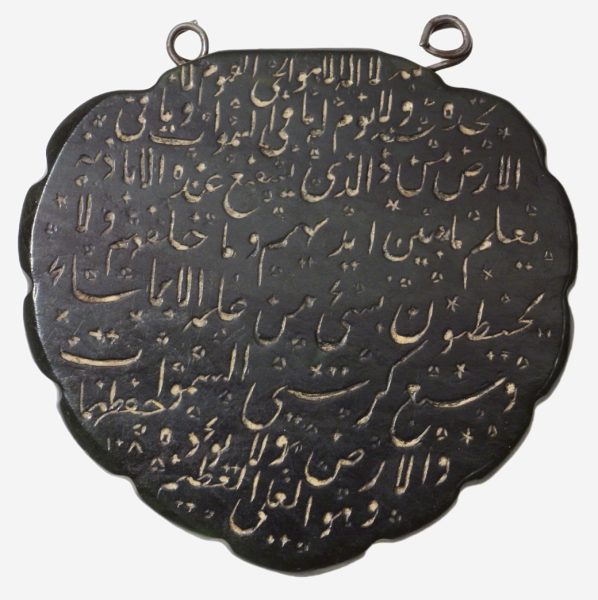 الله لا اله الا هو الحي القيوم لا
تخذه سنة ولا نوم له ما في السموات وما في
الارض من ذ الذي يشفع عنده الا باذنه
يعلم ما بين ايديهم وما خلفهم ولا
يحيطون بشئ من علمه الا بما شاء
وسع كرسيه السموات
والارض ولا يؤده حفظهما
وهو العلي العظيم
١٠٨